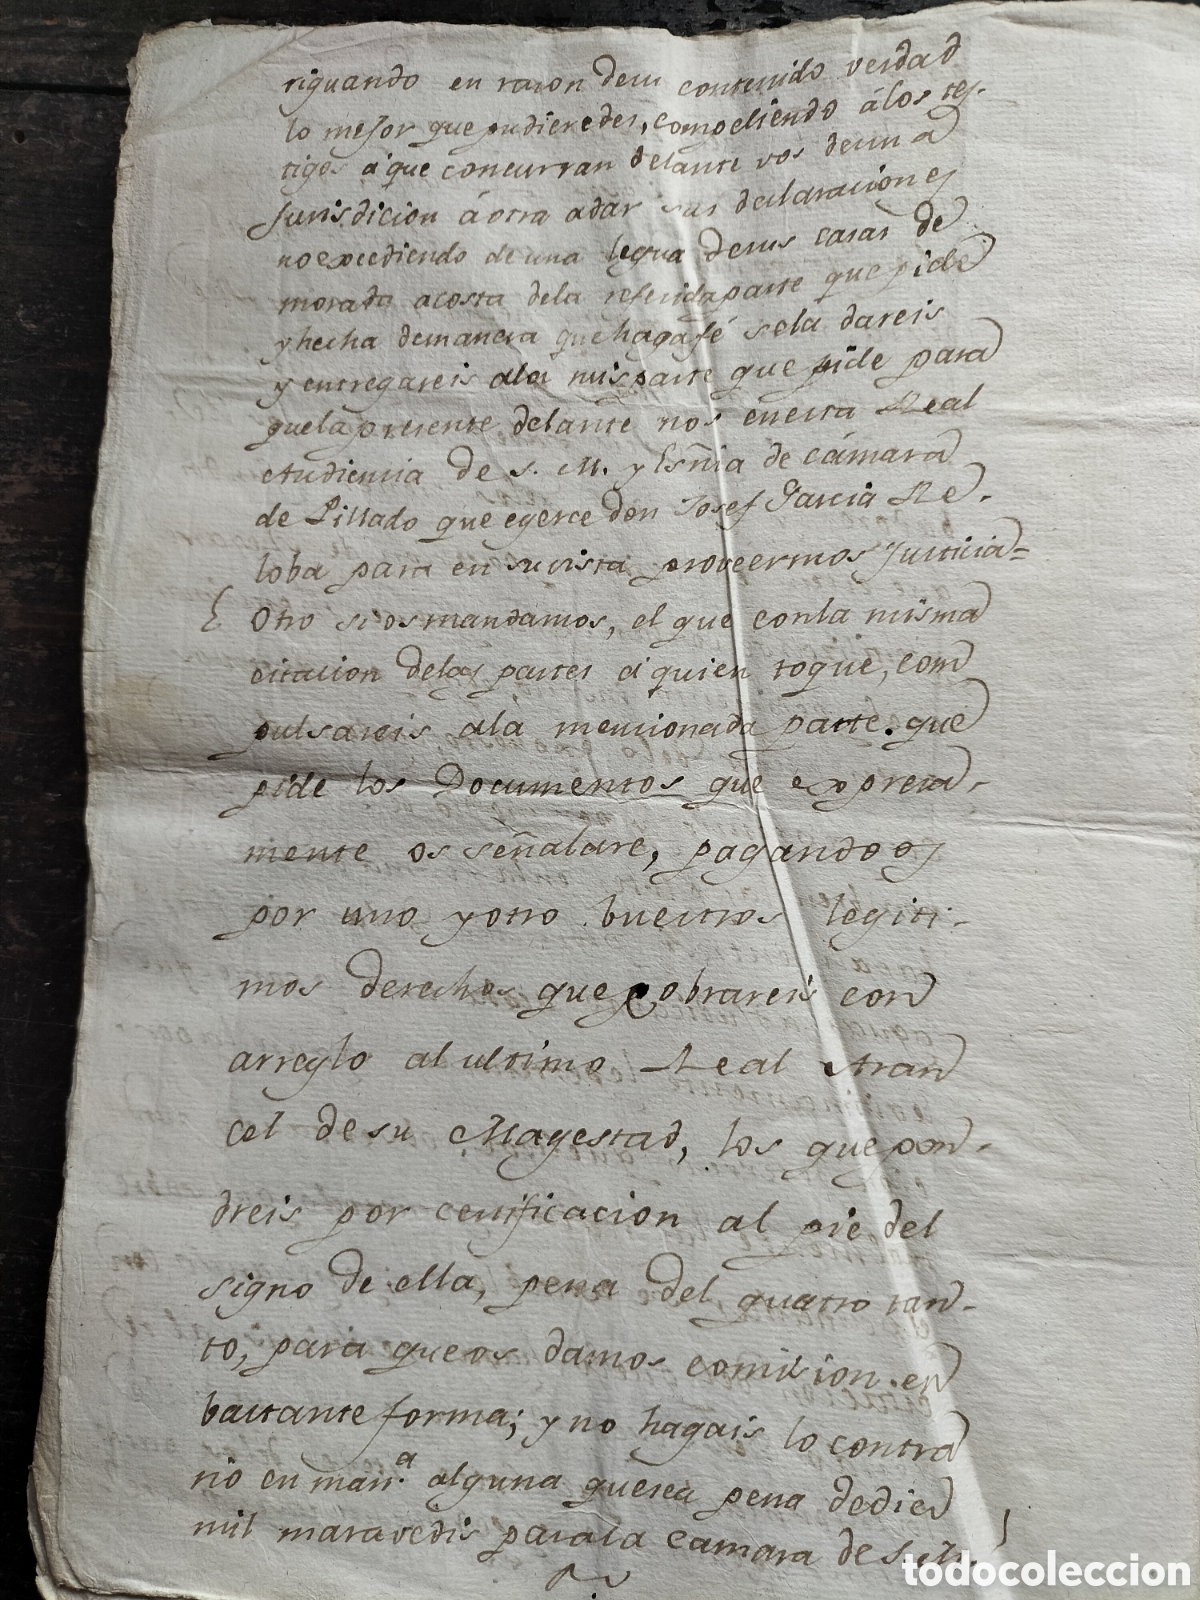 riguando en razon desu contenido verdad
lo mejor que pudieredes, compeliendo á los tes-
tigos a que concurran delante vos deuna
Jurisdicion á otra adar sus declaraciones
noexcediendo de una legua desus casas de
morada acosta dela referidaparte que pide
yhecha demanera quehagafé sela dareis
y entregareis ala misparte que pide para
quela presente delante nos enesta Real
Audiencia de S. M. y Esñia de cámara
de Pillado que egerce don Josef Garcia Re-
loba para en suvista proveermos Justicia=
Otro si os mandamos, el que conla misma
citacion delas partes á quien toque, com
pulsareis ala mencionada parte que
pide los Documentos que expresa-
mente os señalare, pagandoos
por uno yotro buestros legiti-
mos derechos que cobrareis con
arreglo al ultimo Real Aran
cel de su Magestad, los que pon-
dreis por certificacion al pie del
signo de ella, pena del quatro tan-
to, para queos damos comision en
bastante forma; y no hagais lo contra
rio en man.ª alguna quesea pena dediez
mil maravedis parala camara de S. M.
todocoleccion